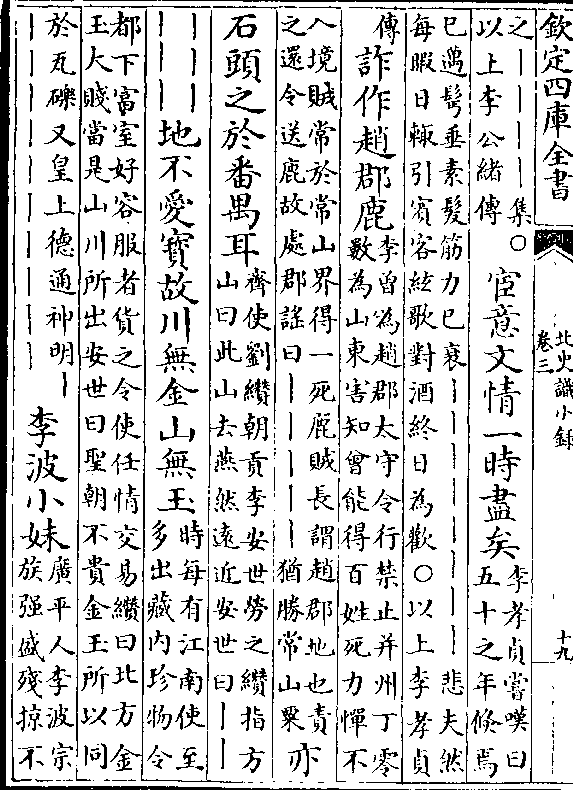 欽定四庫全書
北史識小錄
卷三
十九
之｜｜｜｜集○
以上李公緒傳
宦意文情一時盡矣
李孝貞嘗嘆曰
五十之年倏焉
已過髩垂素髮筋力已衰｜｜｜｜｜｜｜｜悲夫然
每暇日輒引賓客絃歌對酒終日為歡○以上李孝貞
傳
詐作趙郡鹿
李曾為趙郡太守令行禁止并州丁零
數為山東害知曾能得百姓死力憚不
入境賊常於常山界得一死鹿賊長謂趙郡地也責
之還令送鹿故處郡謠曰｜｜｜｜｜猶勝常山粟
亦
石頭之於番禺耳
齊使劉纘朝貢李安世勞之纘指方
山曰此山去燕然遠近安世曰｜｜
｜｜｜
｜｜｜
地不愛寶故川無金山無玉
時每有江南使至
多出藏內珍物令
都下富室好容服者貨之令使任情交易纘曰北方金
玉大賤當是山川所出安世曰聖朝不貴金玉所以同
於瓦礫又皇上德通神明｜
｜｜｜｜｜｜｜｜｜｜
李波小妹
廣平人李波宗
族强盛殘掠不